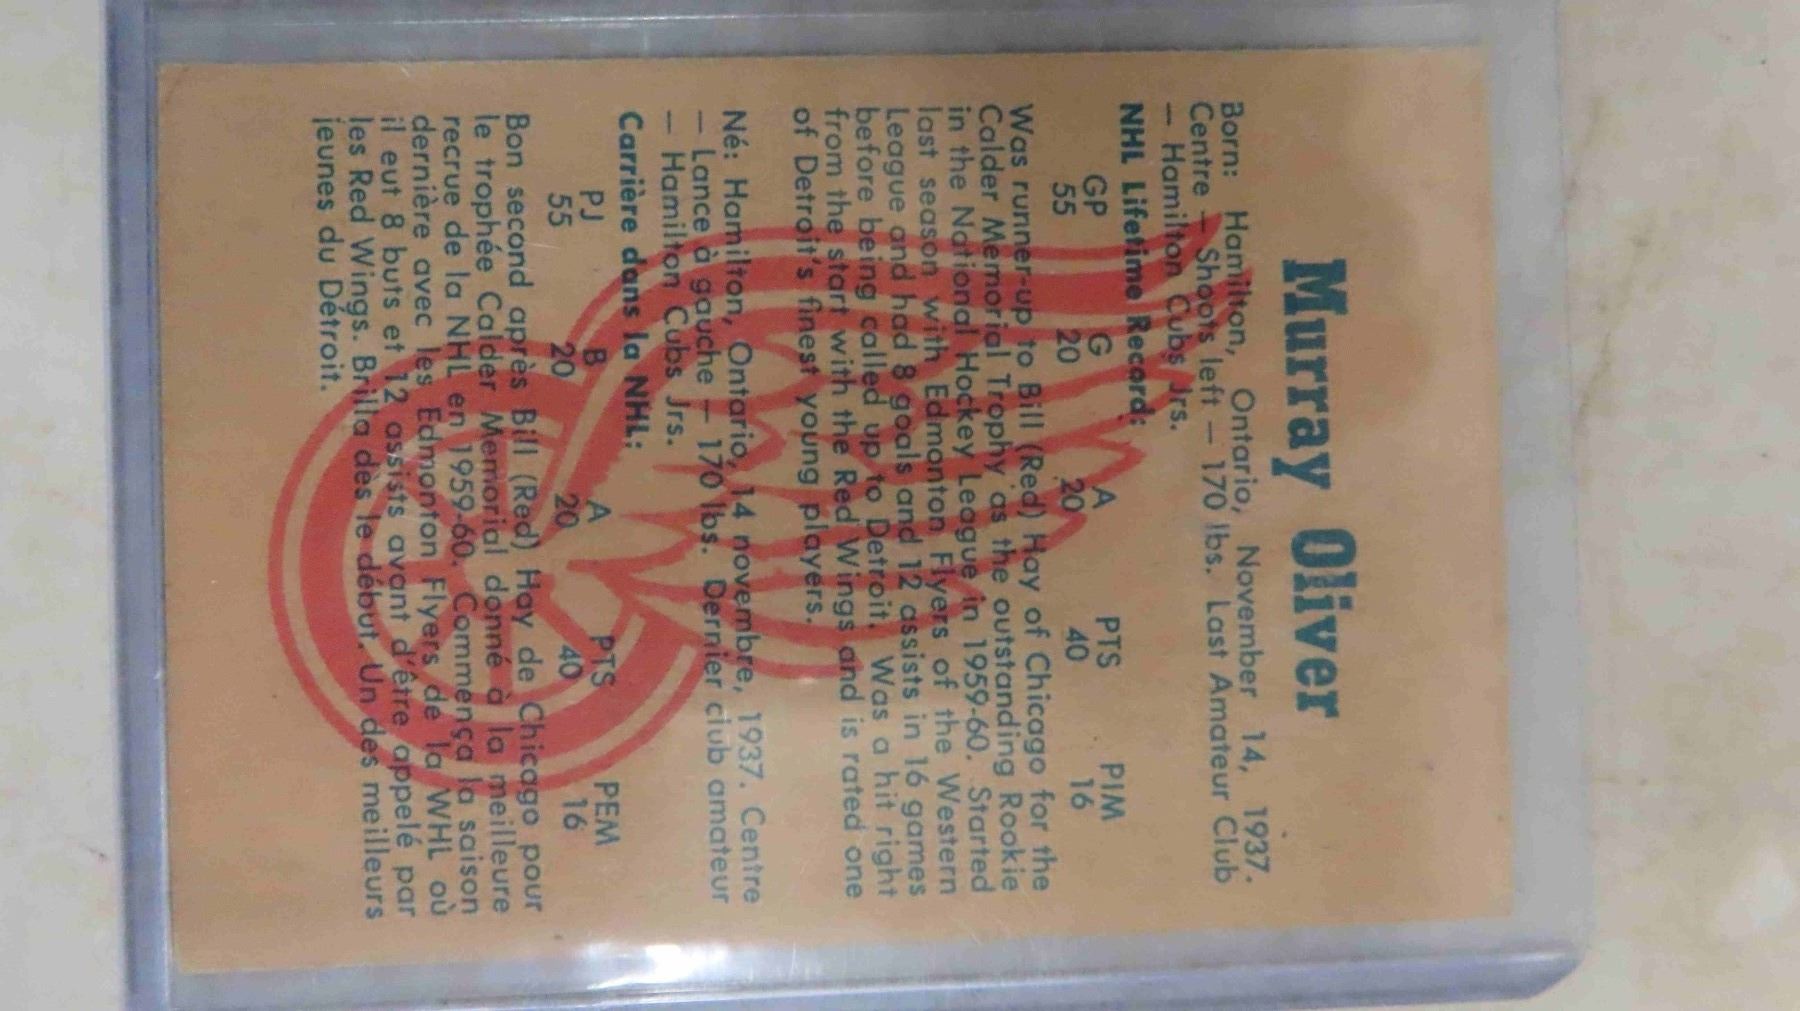 Murray Oliver
Born: Hamilton, Ontario, November 14, 1937.
Centre – Shoots left – 170 lbs. Last Amateur Club
– Hamilton Cubs Jrs.
NHL Lifetime Record:
GP G A PTS PIM
55 20 20 40 16
Was runner-up to Bill (Red) Hay of Chicago for the
Calder Memorial Trophy as the outstanding Rookie
in the National Hockey League in 1959-60. Started
last season with Edmonton Flyers of the Western
League and had 8 goals and 12 assists in 16 games
before being called up to Detroit. Was a hit right
from the start with the Red Wings and is rated one
of Detroit's finest young players.
Né: Hamilton, Ontario, 14 novembre, 1937. Centre
– Lance à gauche – 170 lbs. Dernier club amateur
– Hamilton Cubs Jrs.
Carrière dans la NHL:
PJ B A PTS PEM
55 20 20 40 16
Bon second après Bill (Red) Hay de Chicago pour
le trophée Calder Memorial donné à la meilleure
recrue de la NHL en 1959-60. Commença la saison
dernière avec les Edmonton Flyers de la WHL où
il eut 8 buts et 12 assists avant d'être appelé par
les Red Wings. Brilla dès le début. Un des meilleurs
jeunes du Détroit.